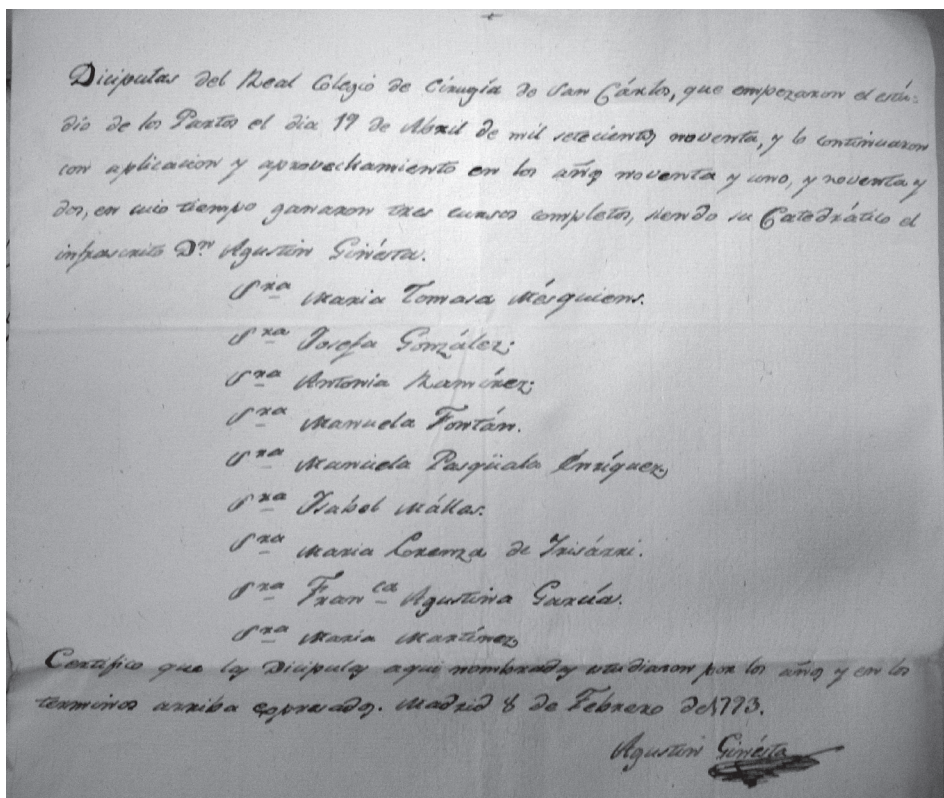 Dicipulas del Real Colegio de Cirugía de San Cárlos, que empezaron el estú-
dio de los Partos el dia 19 de Abril de mil setecientos noventa, y lo continuaron
con aplicacion y aprovechamiento en los años noventa y uno, y noventa y
dos, en cuio tiempo ganaron tres cursos completos, siendo su Catedrático el
infrascrito Dn Agustin Ginésta.
Sra Maria Tomasa Mésquiens.
Sra Josefa González.
Sra Antonia Ramírez.
Sra Manuela Fontán.
Sra Manuela Pasqüala Enríquez.
Sra Ysabel Mállas.
Sra Maria Lorenza de Irisárri.
Sra Franca Agustina García.
Sra Maria Martínez
Certifico que las Dicipulas aqui nombradas estudiaron por los años y en los
terminos arriba expresados. Madrid 8 de Febrero de 1793.
Agustin Ginésta